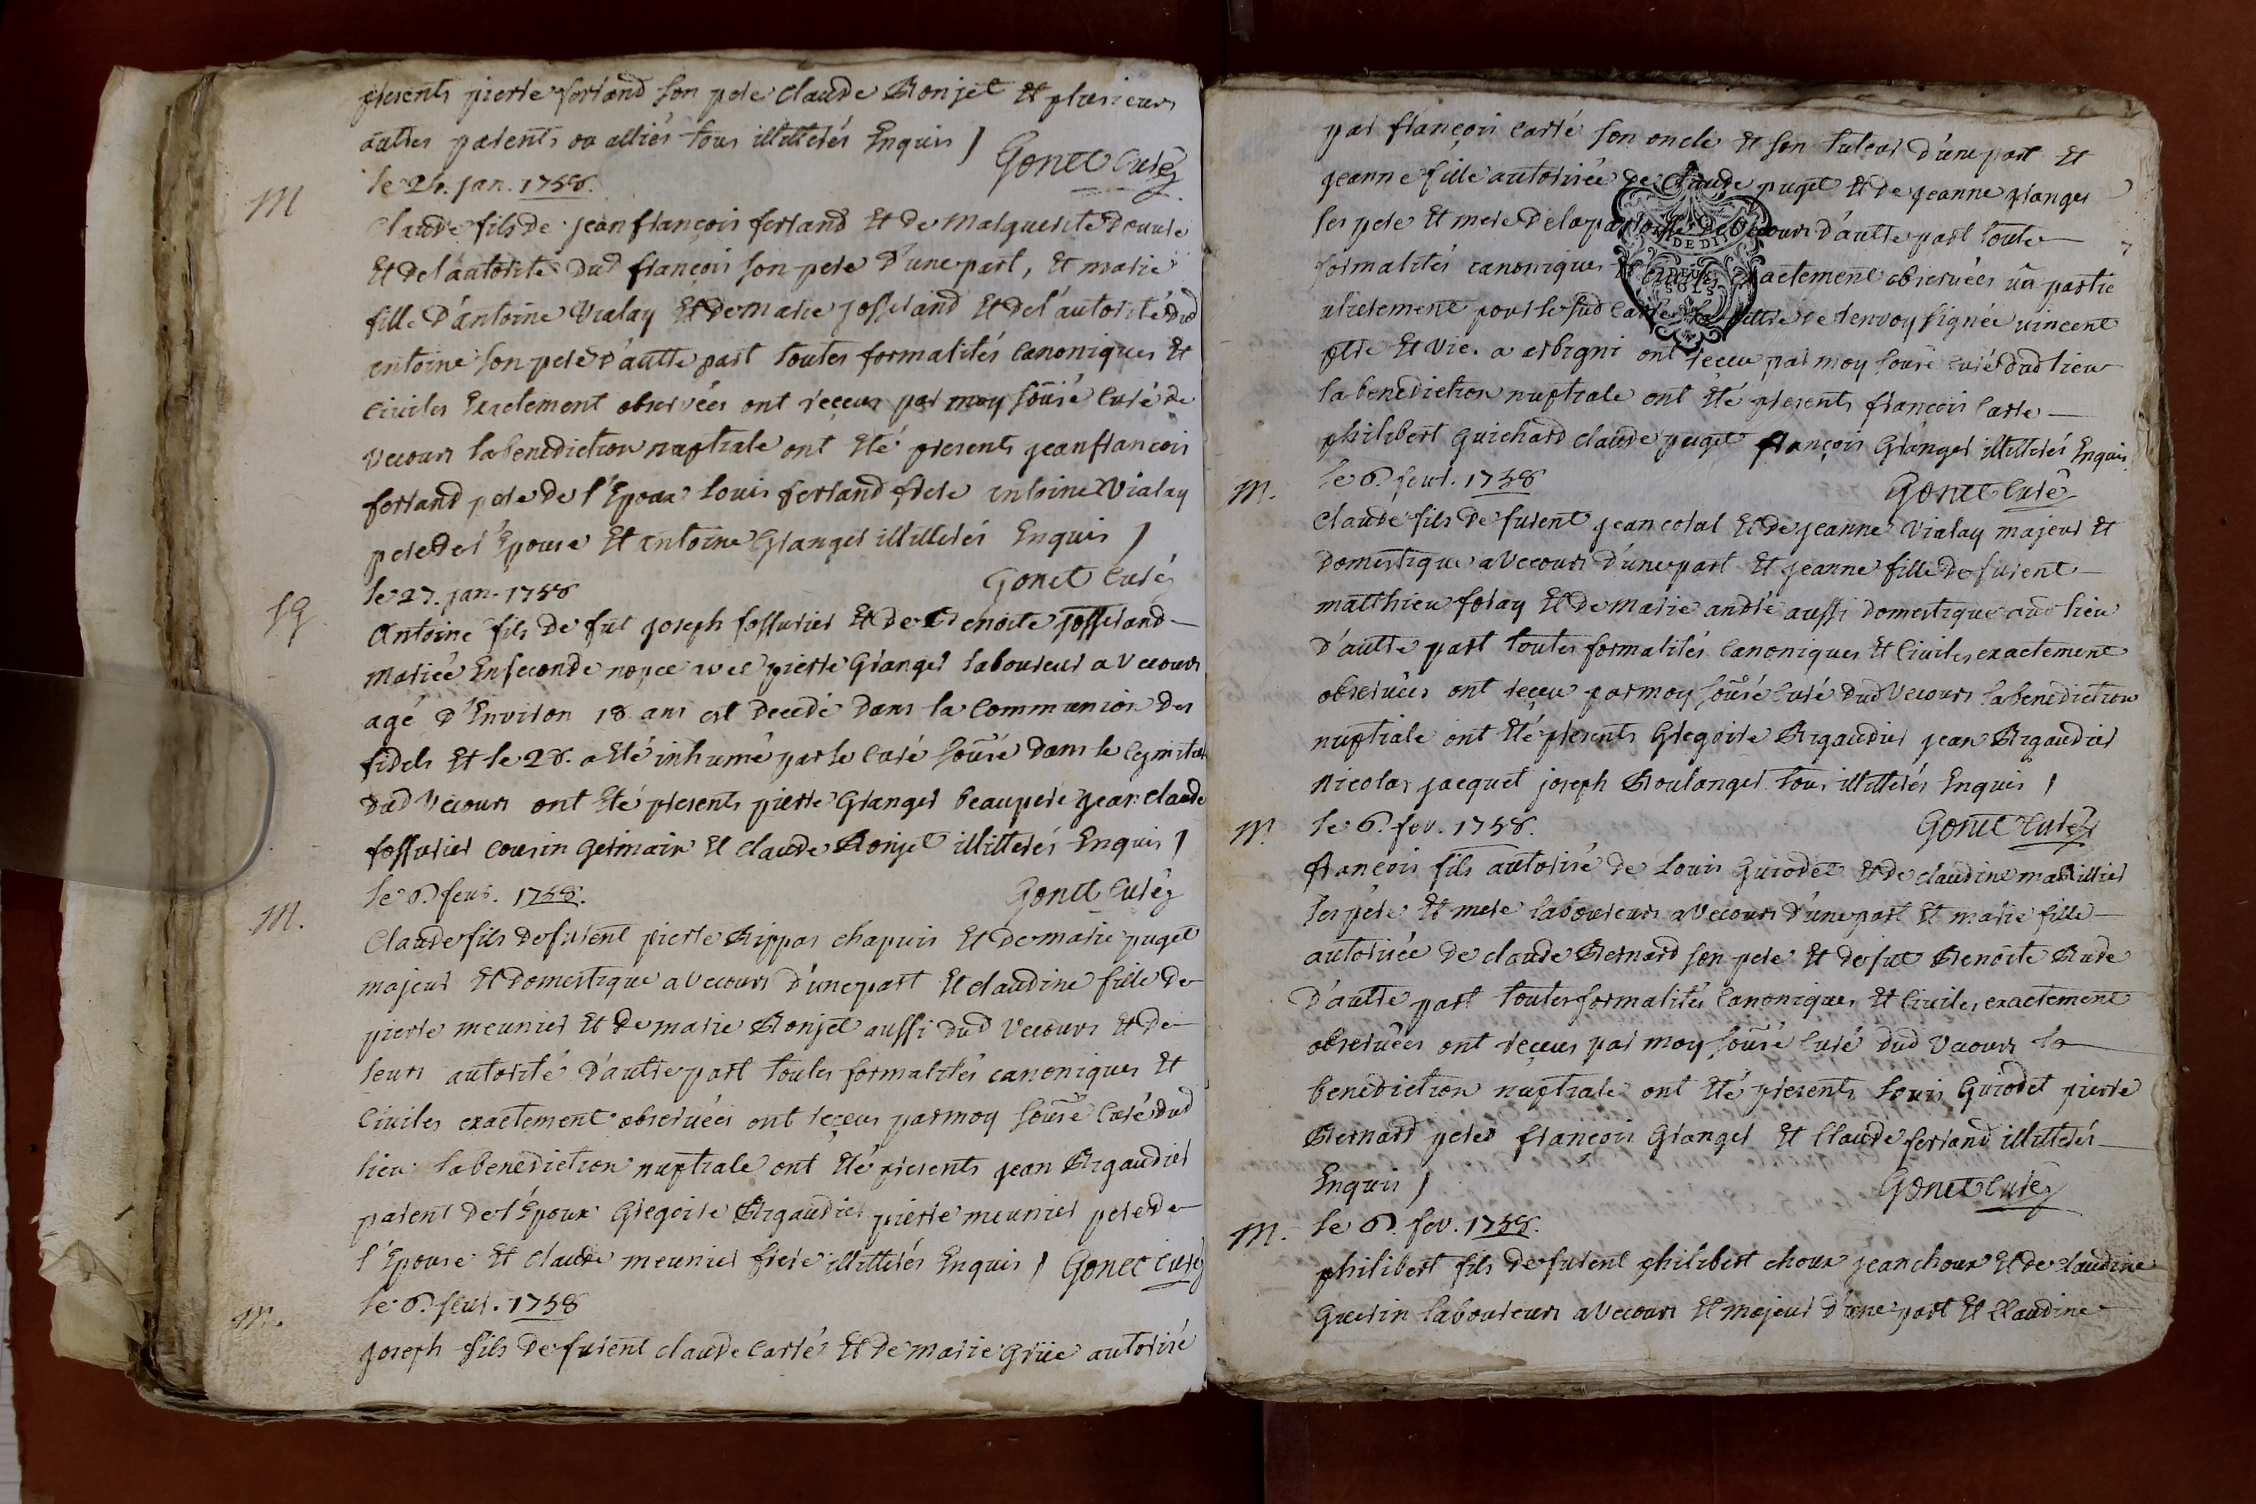 presents pierre ferrand son pere claude Bonjet Et plusieurs
autres parents ou alliés tous illitterés Enquis /
Gonet Curé
M
le 24. jan. 1758.
Claude fils de jean françois ferrand Et de Marguerite
Et de l'autorité dud françois son pere d'une part, Et marie
fille d'antoine Vialay Et de marie josserand Et de l'autorité dud
antoine son pere d'autre part toutes formalités canoniques Et
civiles Exactement observées ont receus par moy sousé curé de
Vecours la benediction nuptiale ont Eté presents jean francois
ferrand pere de l'Epoux louis ferrand frere antoine Vialay
pere de l'Epouse Et antoine Granger illitterés Enquis /
Gonet Curé
Sg.
le 27. jan. 1758
Antoine fils de fut joseph fossurier Et de Benoite josserand
mariée En seconde nopce avec pierre Granger laboureur a Vecours
agé d'Environ 18 ans est decedé dans la Communion des
fidels Et le 28. a Eté inhumé par le curé sousé dans le
dud Vecours ont Eté presents pierre Granger beaupere jean claude
fossurier cousin germain Et claude Bonjet illitterés Enquis /
Gonet Curé
M.
le 6 feur. 1758.
Claude fils de furent pierre Rippas chapuis Et de marie puget
majeur Et domestique a Vecours d'une part Et claudine fille de
pierre meunier Et de marie Bonjet aussi dud Vecours Et de
leurs autorité d'autre part toutes formalités canoniques Et
civiles exactement observées ont receus par moy sousé curé dud
lieu la benediction nuptiale ont Eté presents jean Rigaudier
parent de l'Epoux Gregoire Rigaudier pierre meunier pere de
l'Epouse Et claude meunier frere illitterés Enquis / Gonet Curé
M.
le 6. feur. 1758
joseph fils de furent claude Carré Et de marie Grüe autorisé
par françois carré son oncle Et son tuteur d'une part Et
jeanne fille autorisée de Claude puget Et de jeanne granger
ses pere Et mere de la paroisse de Vecours d'autre part toute
formalités canoniques Et civiles exactement observées un partie
ulierement pour le sud Carré la lettre de renvoy signée vincent
ptre Et vic. a arbigni ont receu par moy sousé curé dud lieu
la benediction nuptiale ont Eté presents françois Carre
philibert Guichard claude puget françois Granger illitterés Enquis
M.
le 6. feur. 1758
Gonet Curé
Claude fils de furent jean coral Et de jeanne Vialay majeur Et
domestique a Vecours d'une part Et jeanne fille de furent
matthieu foray Et de marie andré aussi domestique aud lieu
d'autre part toutes formalités canoniques Et civiles exactement
observées ont receu par moy sousé curé dud Vecours la benediction
nuptiale ont Eté presents Gregoire Rigaudier jean Rigaudier
Nicolas jacquet joseph Boulanger tous illitterés Enquis /
M.
le 6. fev. 1758.
Gonet Curé
françois fils autorisé de louis Guiodet Et de claudine
ses pere Et mere laboureurs a Vecours d'une part Et marie fille
autorisée de claude Bernard son pere Et de fut Benoite Rude
d'autre part toutes formalités canoniques Et civiles exactement
observées ont receus par moy sousé curé dud Vecours la
benediction nuptiale ont Eté presents louis Guiodet pierre
Bernard peres françois Granger Et Claude ferrand illitterés
Enquis /
Gonet Curé
M.
le 6. fev. 1758.
philibert fils de furent philibert choux jean choux Et de claudine
Guerin laboureurs a Vecours Et majeur d'une part Et Claudine